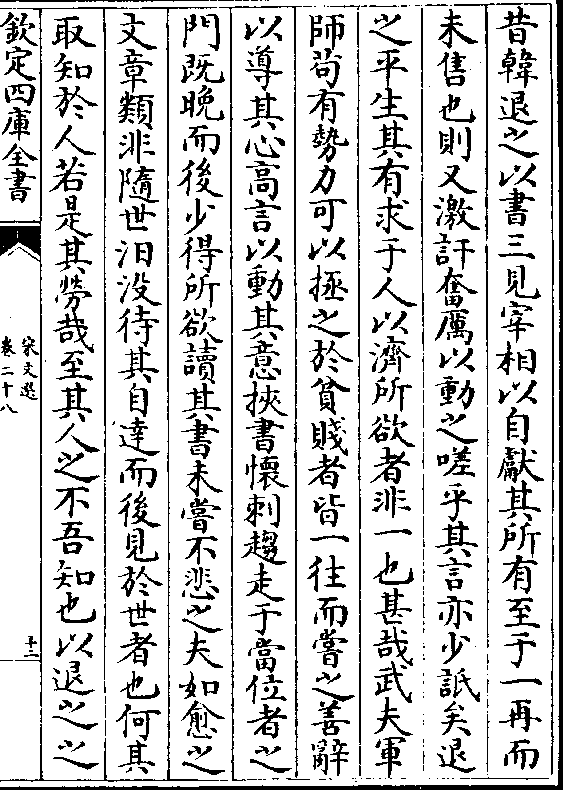 昔韓退之以書三見宰相以自獻其所有至于一再而
未售也則又激訐奮厲以動之嗟乎其言亦少詆矣退
之平生其有求于人以濟所欲者非一也甚哉武夫軍
師茍有勢力可以拯之於貧賤者皆一往而嘗之善辭
以導其心高言以動其意挾書懷刺趨走于當位者之
門既晚而後少得所欲讀其書未嘗不悲之夫如愈之
文章類非隨世汨没待其自達而後見於世者也何其
取知於人若是其勞哉至其人之不吾知也以退之之
欽定四庫全書
宋文選
卷二十八
十二